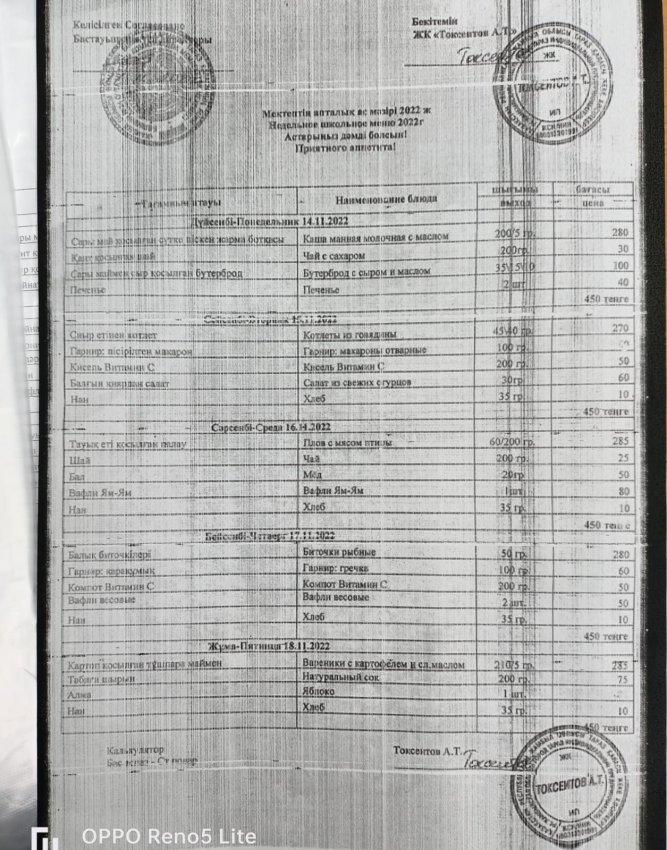 Келісілген Согласовано
Бекітемін
ЖК «Токсентов А.Т.»
Мектептің апталық ас мәзірі 2022 ж
Недельное школьное меню 2022г
Астарыңыз дәмді болсын!
Приятного аппетита!
Тағамның атауы Наименование блюда шығымы выход бағасы цена
Дүйсенбі-Понедельник 14.11.2022
Сары май қосылған сүтке піскен жарма ботқасы Каша манная молочная с маслом 200/5 гр. 280
Кант қосылған шай Чай с сахаром 200гр. 30
Сары маймен сыр қосылған бутерброд Бутерброд с сыром и маслом 35\15\10 100
Печенье Печенье 2 шт 40
450 тенге
Сейсенбі-Вторник 15.11.2022
Сиыр етінен котлет Котлеты из говядины 45\40 гр. 270
Гарнир: пісірілген макарон Гарнир: макароны отварные 100 гр.
Кисель Витамин С Кисель Витамин С 200 гр. 50
Балғын қиярдан салат Салат из свежих огурцов 30гр 60
Нан Хлеб 35 гр. 10
450 тенге
Сәрсенбі-Среда 16.11.2022
Тауық еті қосылған палау Плов с мясом птицы 60/200 гр. 285
Шай Чай 200 гр. 25
Бал Мед 20гр 50
Вафли Ям-Ям Вафли Ям-Ям 1шт. 80
Нан Хлеб 35 гр. 10
450 тенге
Бейсенбі-Четверг 17.11.2022
Балық биточкілері Биточки рыбные 50 гр. 280
Гарнир: қарақұмық Гарнир: гречка 100 гр. 60
Компот Витамин С Компот Витамин С 200 гр. 50
Вафли весовые Вафли весовые 2 шт. 50
Нан Хлеб 35 гр. 10
450 тенге
Жұма-Пятница 18.11.2022
Картоп қосылған тұшпара маймен Вареники с картофелем и сл.маслом 210/5 гр. 285
Табиғи шырын Натуральный сок 200 гр. 75
Алма Яблоко 1 шт.
Нан Хлеб 35 гр. 10
450 тенге
Калькулятор Токсентов А.Т.
ТОКСЕНТОВ А.Т.
OPPO Reno5 Lite